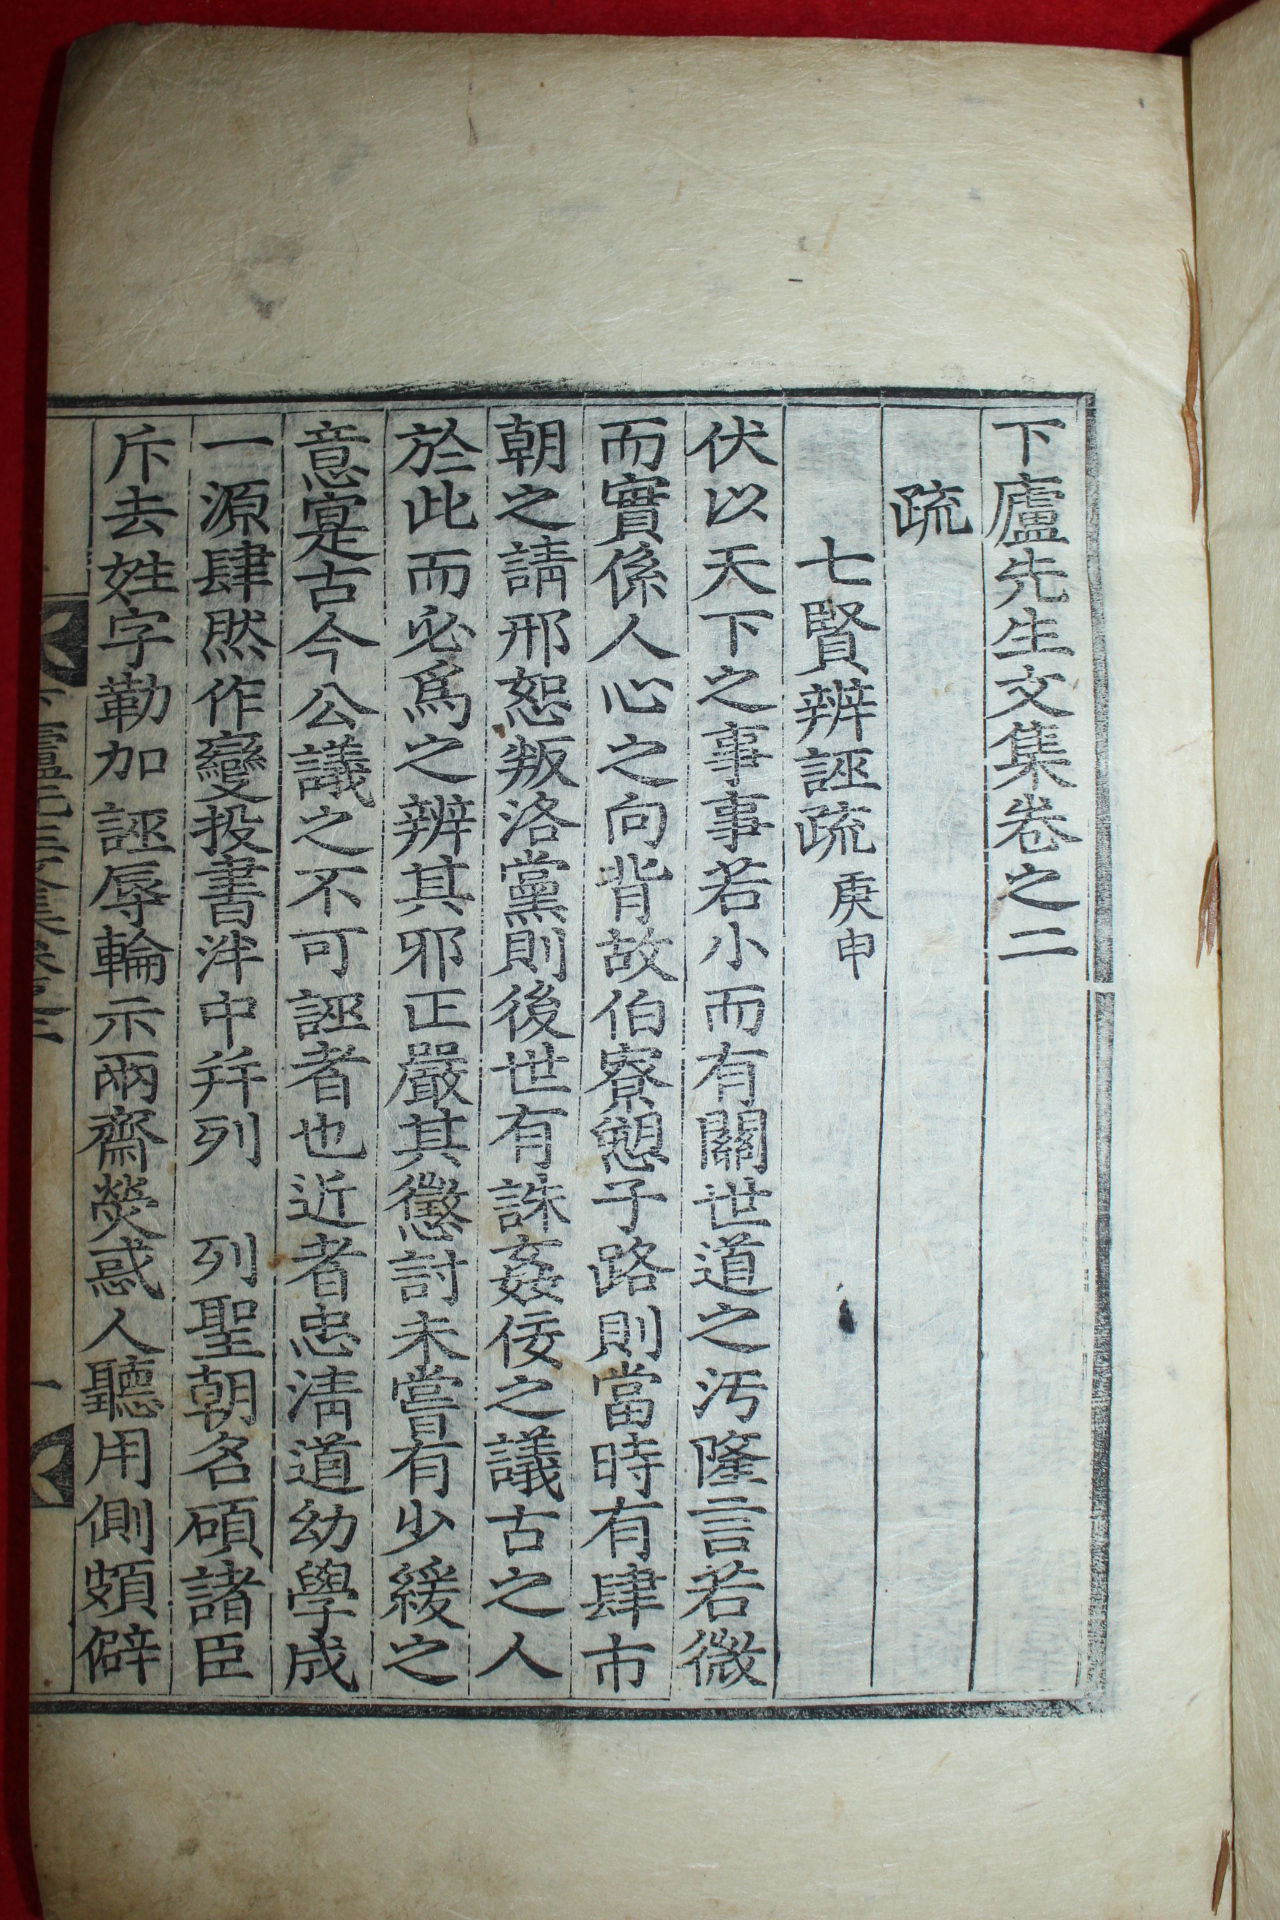 下廬先生文集卷之二
疏
七賢辨誣疏 庚申
伏以天下之事事若小而有關世道之汚隆言若微
而實係人心之向背故伯寮愬子路則當時有肆市
朝之請邢恕叛洛黨則後世有誅姦佞之議古之人
於此而必爲之辨其邪正嚴其懲討未嘗有少緩之
意寔古今公議之不可誣者也近者忠淸道幼學成
一源肆然作變投書泮中幷列 列聖朝名碩諸臣
斥去姓字勒加誣辱輪示兩齋熒惑人聽用側頗僻